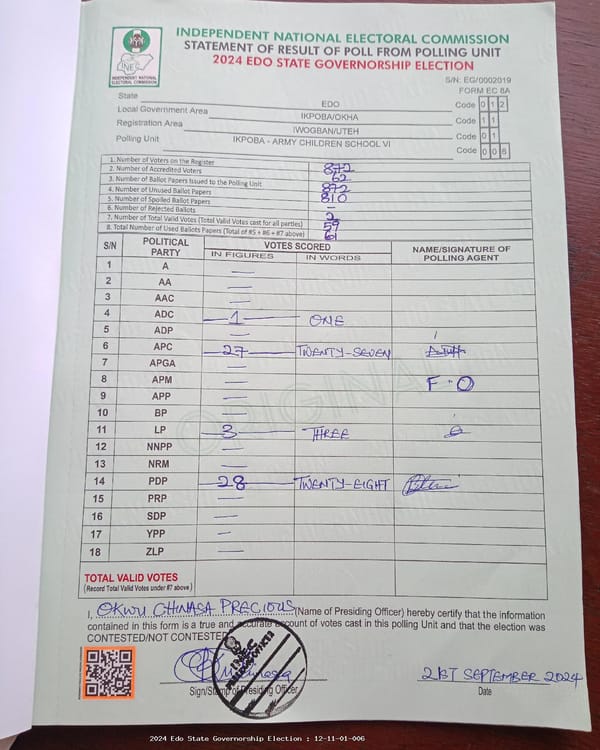 INDEPENDENT NATIONAL ELECTORAL COMMISSION
STATEMENT OF RESULT OF POLL FROM POLLING UNIT
2024 EDO STATE GOVERNORSHIP ELECTION
INEC
INDEPENDENT NATIONAL
ELECTORAL COMMISSION
S/N: EG/0002019
FORM EC 8A
State EDO Code 0 1 2
Local Government Area IKPOBA/OKHA Code 1 1
Registration Area IWOGBAN/UTEH Code 0 1
Polling Unit IKPOBA - ARMY CHILDREN SCHOOL VI Code 0 0 6
1. Number of Voters on the Register 872
2. Number of Accredited Voters 62
3. Number of Ballot Papers Issued to the Polling Unit 872
4. Number of Unused Ballot Papers 810
5. Number of Spoiled Ballot Papers —
6. Number of Rejected Ballots 2
7. Number of Total Valid Votes (Total Valid Votes cast for all parties) 59
8. Total Number of Used Ballots Papers (Total of #5 + #6 + #7 above) 61
S/N POLITICAL PARTY VOTES SCORED NAME/SIGNATURE OF POLLING AGENT
IN FIGURES IN WORDS
1 A —
2 AA —
3 AAC —
4 ADC 1 ONE
5 ADP —
6 APC 27 TWENTY-SEVEN
7 APGA —
8 APM — F.O
9 APP —
10 BP —
11 LP 3 THREE
12 NNPP —
13 NRM —
14 PDP 28 TWENTY-EIGHT
15 PRP —
16 SDP —
17 YPP —
18 ZLP —
TOTAL VALID VOTES
(Record Total Valid Votes under #7 above)
ORIGINAL
I, OKWU CHINASA PRECIOUS (Name of Presiding Officer) hereby certify that the information
contained in this form is a true and accurate account of votes cast in this polling Unit and that the election was
CONTESTED/NOT CONTESTED
INEC
21ST SEPTEMBER 2024
Sign/Stamp of Presiding Officer Date
2024 Edo State Governorship Election : 12-11-01-006